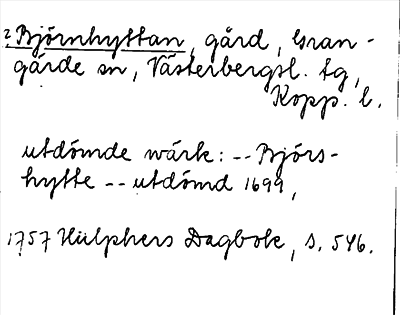 2 Björnhyttan, gård, Gran-
gärde sn, Västerbergsl. tg,
Kopp. l.
utdömde wärk: -- Björs-
hytte -- utdömd 1699,
1757 Hülphers Dagbok, s. 546.